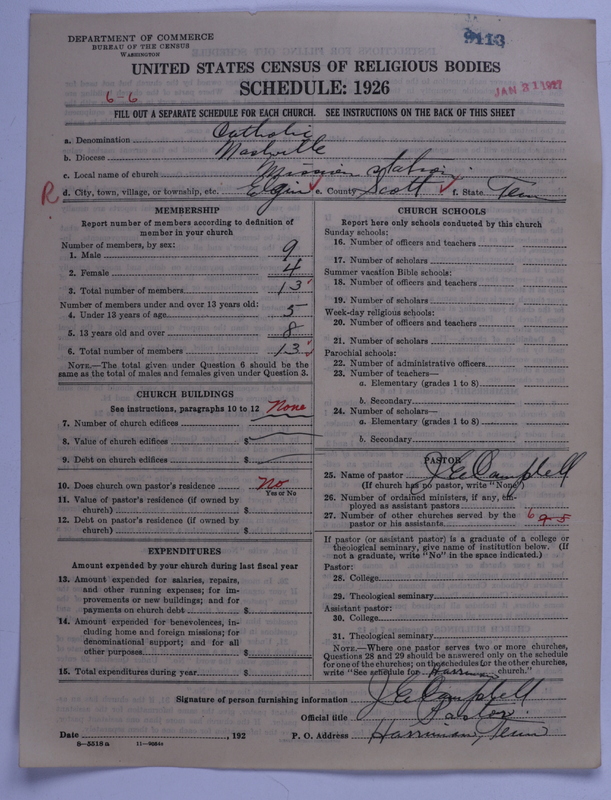 DEPARTMENT OF COMMERCE
BUREAU OF THE CENSUS
WASHINGTON
9113
UNITED STATES CENSUS OF RELIGIOUS BODIES
SCHEDULE: 1926
6-6
JAN 31 1927
FILL OUT A SEPARATE SCHEDULE FOR EACH CHURCH. SEE INSTRUCTIONS ON THE BACK OF THIS SHEET
a. Denomination Catholic
b. Diocese Nashville
c. Local name of church Mission Station
R d. City, town, village, or township, etc. Elgin e. County Scott f. State Tenn
MEMBERSHIP
Report number of members according to definition of
member in your church
Number of members, by sex:
1. Male 9
2. Female 4
3. Total number of members 13
Number of members under and over 13 years old:
4. Under 13 years of age 5
5. 13 years old and over 8
6. Total number of members 13
NOTE.—The total given under Question 6 should be the
same as the total of males and females given under Question 3.
CHURCH BUILDINGS
See instructions, paragraphs 10 to 12 None
7. Number of church edifices
8. Value of church edifices $
9. Debt on church edifices $
10. Does church own pastor's residence No
Yes or No
11. Value of pastor's residence (if owned by
church) $
12. Debt on pastor's residence (if owned by
church) $
EXPENDITURES
Amount expended by your church during last fiscal year
13. Amount expended for salaries, repairs,
and other running expenses; for im-
provements or new buildings; and for
payments on church debt $
14. Amount expended for benevolences, in-
cluding home and foreign missions; for
denominational support; and for all
other purposes $
15. Total expenditures during year $
CHURCH SCHOOLS
Report here only schools conducted by this church
Sunday schools:
16. Number of officers and teachers
17. Number of scholars
Summer vacation Bible schools:
18. Number of officers and teachers
19. Number of scholars
Week-day religious schools:
20. Number of officers and teachers
21. Number of scholars
Parochial schools:
22. Number of administrative officers
23. Number of teachers—
a. Elementary (grades 1 to 8)
b. Secondary
24. Number of scholars—
a. Elementary (grades 1 to 8)
b. Secondary
PASTOR
25. Name of pastor J E Campbell
(If church has no pastor, write "None")
26. Number of ordained ministers, if any, em-
ployed as assistant pastors
27. Number of other churches served by the 6
pastor or his assistants
If pastor (or assistant pastor) is a graduate of a college or
theological seminary, give name of institution below. (If
not a graduate, write "No" in the space indicated.)
Pastor:
28. College
29. Theological seminary
Assistant pastor:
30. College
31. Theological seminary
NOTE.—Where one pastor serves two or more churches,
Questions 28 and 29 should be answered only on the schedule
for one of the churches; on the schedules for the other churches,
write "See schedule for Harriman church."
Signature of person furnishing information J E Campbell
Official title Pastor
Date , 192 P. O. Address Harriman, Tenn
8—5518a